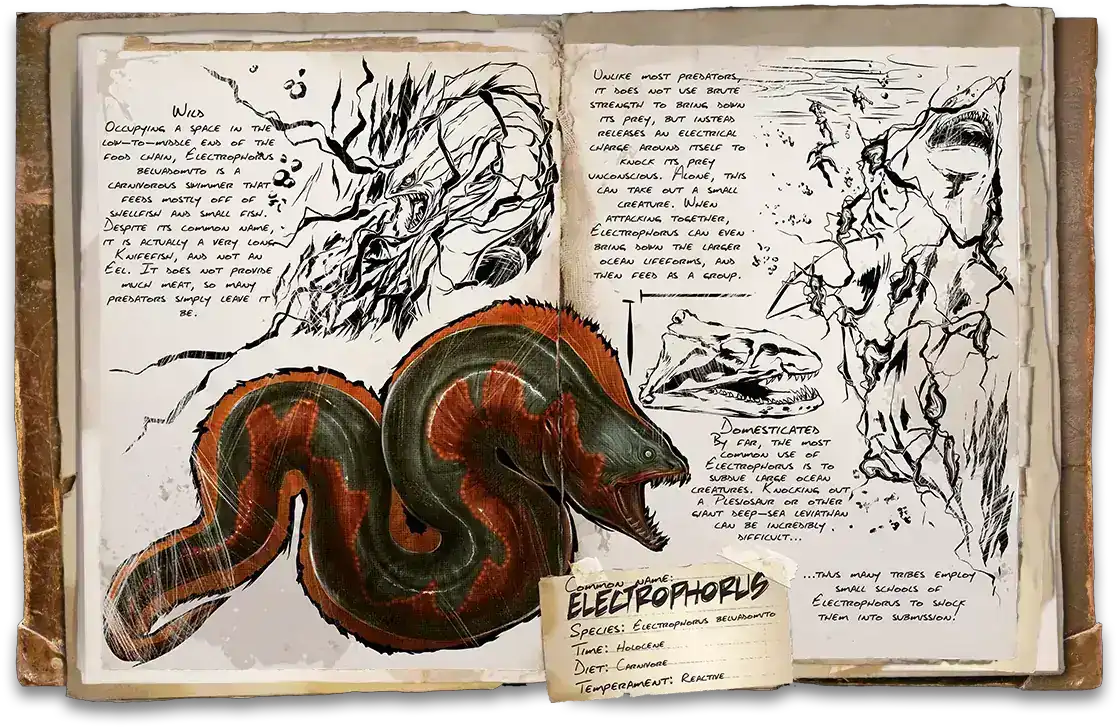 Wild
Occupying a space in the
low-to-middle end of the
food chain, Electrophorus
beluadomito is a
carnivorous swimmer that
feeds mostly off of
shellfish and small fish.
Despite its common name,
it is actually a very long
Knifefish, and not an
Eel. It does not provide
much meat, so many
predators simply leave it
be.
Unlike most predators,
it does not use brute
strength to bring down
its prey, but instead
releases an electrical
charge around itself to
knock its prey
unconscious. Alone, this
can take out a small
creature. When
attacking together,
Electrophorus can even
bring down the larger
ocean lifeforms, and
then feed as a group.
Domesticated
By far, the most
common use of
Electrophorus is to
subdue large ocean
creatures. Knocking out
a Plesiosaur or other
giant deep-sea leviathan
can be incredibly
difficult...
...thus many tribes employ
small schools of
Electrophorus to shock
them into submission.
Common name:
Electrophorus
Species: Electrophorus beluadomito
Time: Holocene
Diet: Carnivore
Temperament: Reactive